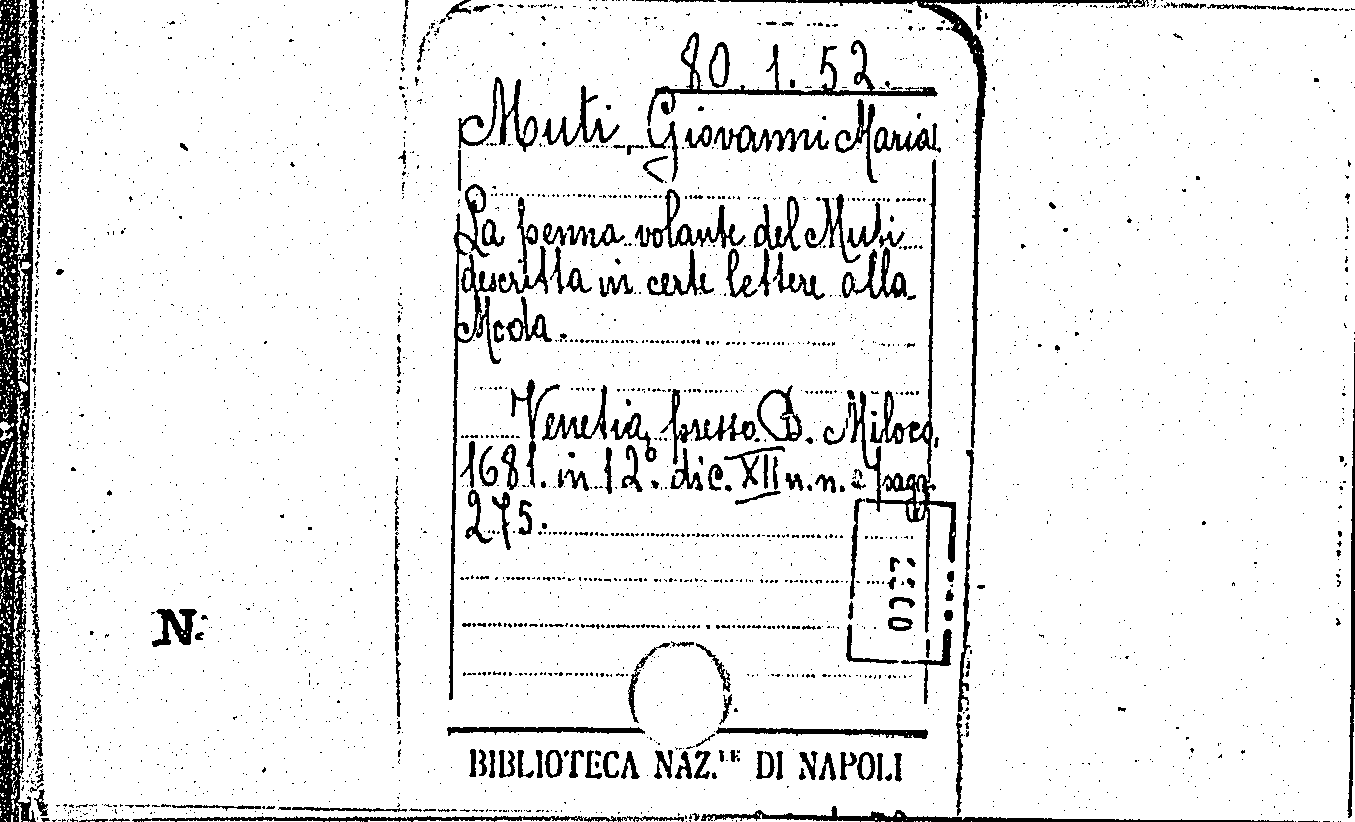 80.1.52.
Muti, Giovanni Maria
La penna volante del Muti
descritta in certe lettere alla
Moda.
Venetia, presso B. Miloco,
1681. in 12°. di c. XII n.n. e pagg.
275.
N.
BIBLIOTECA NAZ.LE DI NAPOLI